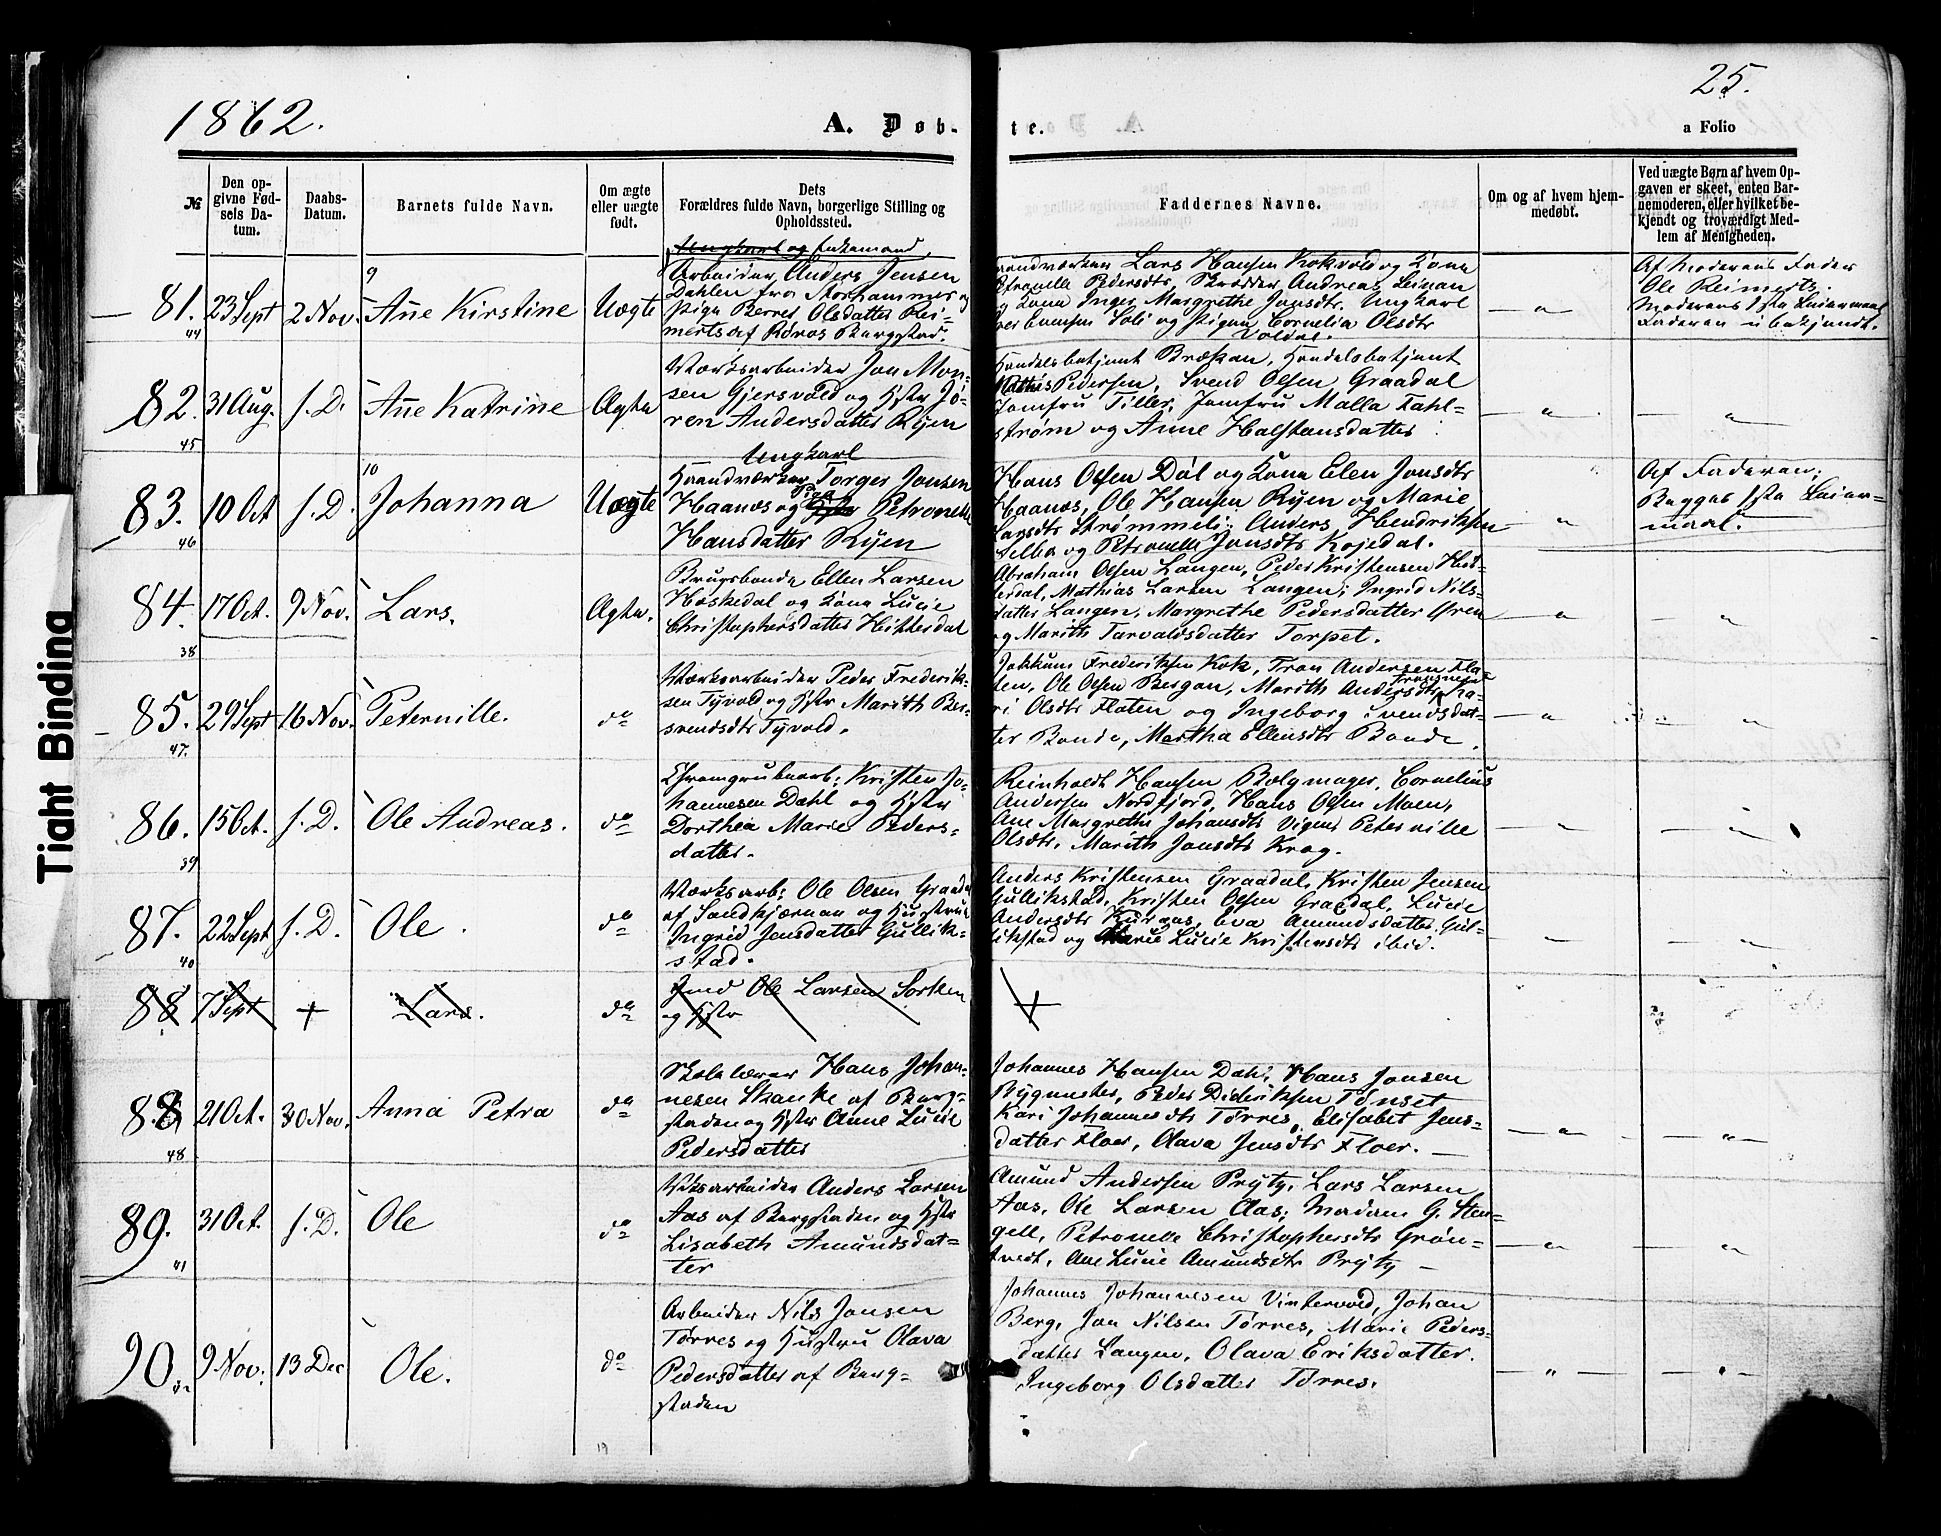 1862.
A. Døb-
te.
25.
a Folio
№
Den op-
givne Fød-
sels Da-
tum.
Daabs-
Datum.
Barnets fulde Navn.
Om ægte
eller uægte
født.
Dets
Forældres fulde Navn, borgerlige Stilling og
Opholdssted.
Faddernes Navne.
Om og af hvem hjem-
medøbt.
Ved uægte Børn af hvem Op-
gaven er skeet, enten Bar-
nemoderen, eller hvilket be-
kjendt og troværdigt Med-
lem af Menigheden.
81.
44
23 Sept
2 Nov.
9
Anne Kirstine
Uægte
Ungkarl og Enkemand
Arbeider Anders Jensen
Dahlen fra Storhammer og
Pige Berret Olsdatter Rei-
merts af Røros Bergstad.
Haandværker Lars Hansen Kokvold og Kone
Petronelle Pedersdtr, Skrædder Andreas Leinan
og Kone Inger Margrethe Jonsdtr. Ungkarl
Hansen Soli og Pigen Cornelia Olsdtr
Voldal.
"
Af Moderens Fader
Ole Reimerts.
Moderens 1ste Leiermaal
Faderen ubekjendt.
82.
45
31 Aug.
s. D.
Anne Katrine
Ægte
Værksarbeider Jon Mon-
sen Gjersvold og Hstr Jø-
ren Andersdatter Ryen
Handelsbetjent Brækan, Handelsbetjent
Mathis Pedersen, Svend Olsen Graadal
Jomfru Tiller, Jomfru Malla Fahl-
strøm og Anne Halstensdatter
"
"
83.
46
10 Oct
s. D.
10
Johanna
Uægte
Ungkarl
Haandværker Torger Jonsen
Haanæs og Pige Hstr Petronelle
Hansdatter Ryen
Hans Olsen Døl og Kone Elen Jonsdtr
Haanæs, Ole Hansen Ryen og Marie
Larsdtr Strømmeli; Anders Hendriksen
Selbo og Petronelle Jonsdtr Kojedal.
"
Af Faderen;
Begges 1ste Leier-
maal.
84.
38
17 Oct.
9 Nov.
Lars.
Ægte.
Brugsbonde Ellen Larsen
Høskedal og Kone Lucie
Christophersdatter Hitterdal
Abraham Olsen Langen, Peder Kristensen Høs-
kedal, Mathias Larsen Langen; Ingrid Nils-
datter Langen, Margrethe Pedersdatter Øren
og Marith Tarvaldsdatter Torpet.
"
"
85.
47.
29 Sept
16 Nov.
Peternille.
do
Værksarbeider Peder Frederik-
sen Tyvold og Hstr Marith Ber-
svendsdtr Tyvold.
Jokkum Frederiksen Kok, Tron Andersen Flo-
ten, Ole Olsen Bergan, Marith Andersdtr Ka-
ri Olsdtr Floten og Ingeborg Svendsdat-
ter Bonde, Martha Ellensdtr Bonde.
"
"
86.
39
15 Oct.
s. D.
Ole Andreas.
do
Chromgrubearb: Kristen Jo-
hannesen Dahl og Hstr
Dorthea Marie Peders-
datter.
Reinholdt Hansen Bolgmager, Cornelius
Andersen Nordfjord, Hans Olsen Moen,
Ane Margrethe Johansdtr Vigen, Peternille
Olsdtr, Marith Jonsdtr Krog.
"
"
87.
40
22 Sept
s. D.
Ole.
do
Værksarb: Ole Olsen Graadal
af Sandkjærnan og Hustrue
Ingrid Jensdatter Gullik-
stad.
Anders Kristensen Graadal, Kristen Jensen
Gullikstad, Kristen Olsen Graadal, Lucie
Andersdtr Kuraas, Eva Amundsdatter Gul-
likstad og Marie Lucie Kristensdtr ibid.
"
"
88
7 Sept
+
Lars.
do
Ole Larsen Sorken
og Hstr
88
48
21 Oct.
30 Nov.
Anna Petra
do
Skolelærer Hans Johan-
nesen Skanke af Berg-
staden og Hstr Anne Lucie
Pedersdatter
Johannes Hansen Dahl, Hans Jonsen
Bygmester, Peder Dideriksen Tønset
Kari Johannesdtr Tørres, Elisabet Jens-
datter Floer, Olava Jensdtr Floer.
"
"
89.
41
31 Oct.
s. D.
Ole
do
Vksarbeider Anders Larsen
Aas af Bergstaden og Hstr
Lisabeth Amundsdat-
ter
Amund Andersen Prytz, Lars Larsen
Aas, Ole Larsen Aas; Madam G. Sten-
gell, Petronelle Christophersdtr Grøn-
tvedt, Ane Lucie Amundsdtr Prytz
"
"
90.
42
9 Nov.
13 Dec
Ole.
do
Arbeider Nils Jonsen
Tørres og Hustru Olava
Pedersdatter af Berg-
staden
Johannes Johannesen Vintervold, Johan
Berg, Jon Nilsen Tørres, Marie Peders-
datter Langen, Olava Eriksdatter.
Ingeborg Olsdatter Tørres.
"
"
Tight Binding